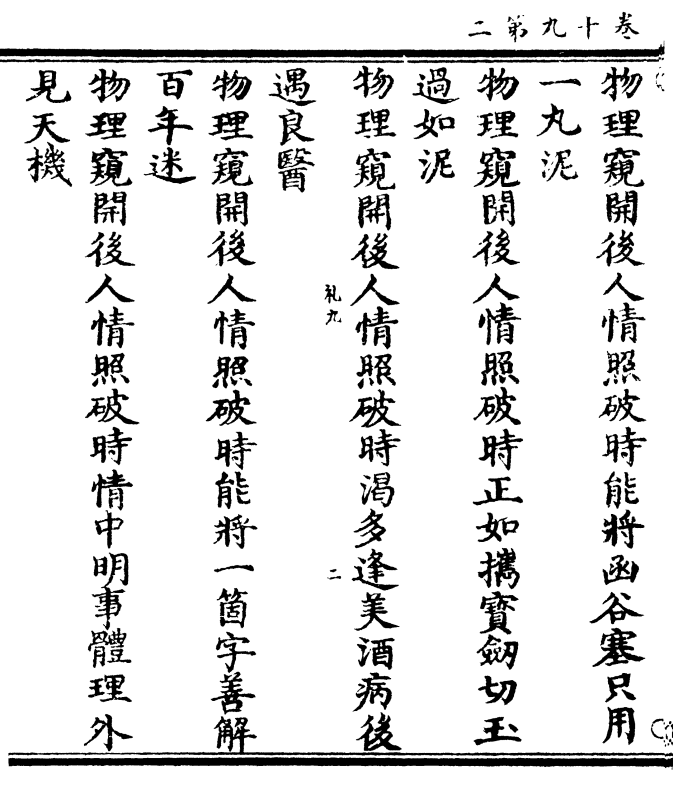 卷十九第二
物理窺開後人情照破時能將函谷塞只用
一丸泥
物理窺開後人情照破時正如攜寶劔切玉
過如泥
物理窺開後人情照破時渴多逢美酒病後
遇良醫
礼九
二
物理窺開後人情照破時能將一箇字善解
百年迷
物理窺開後人情照破時情中明事體理外
見天機